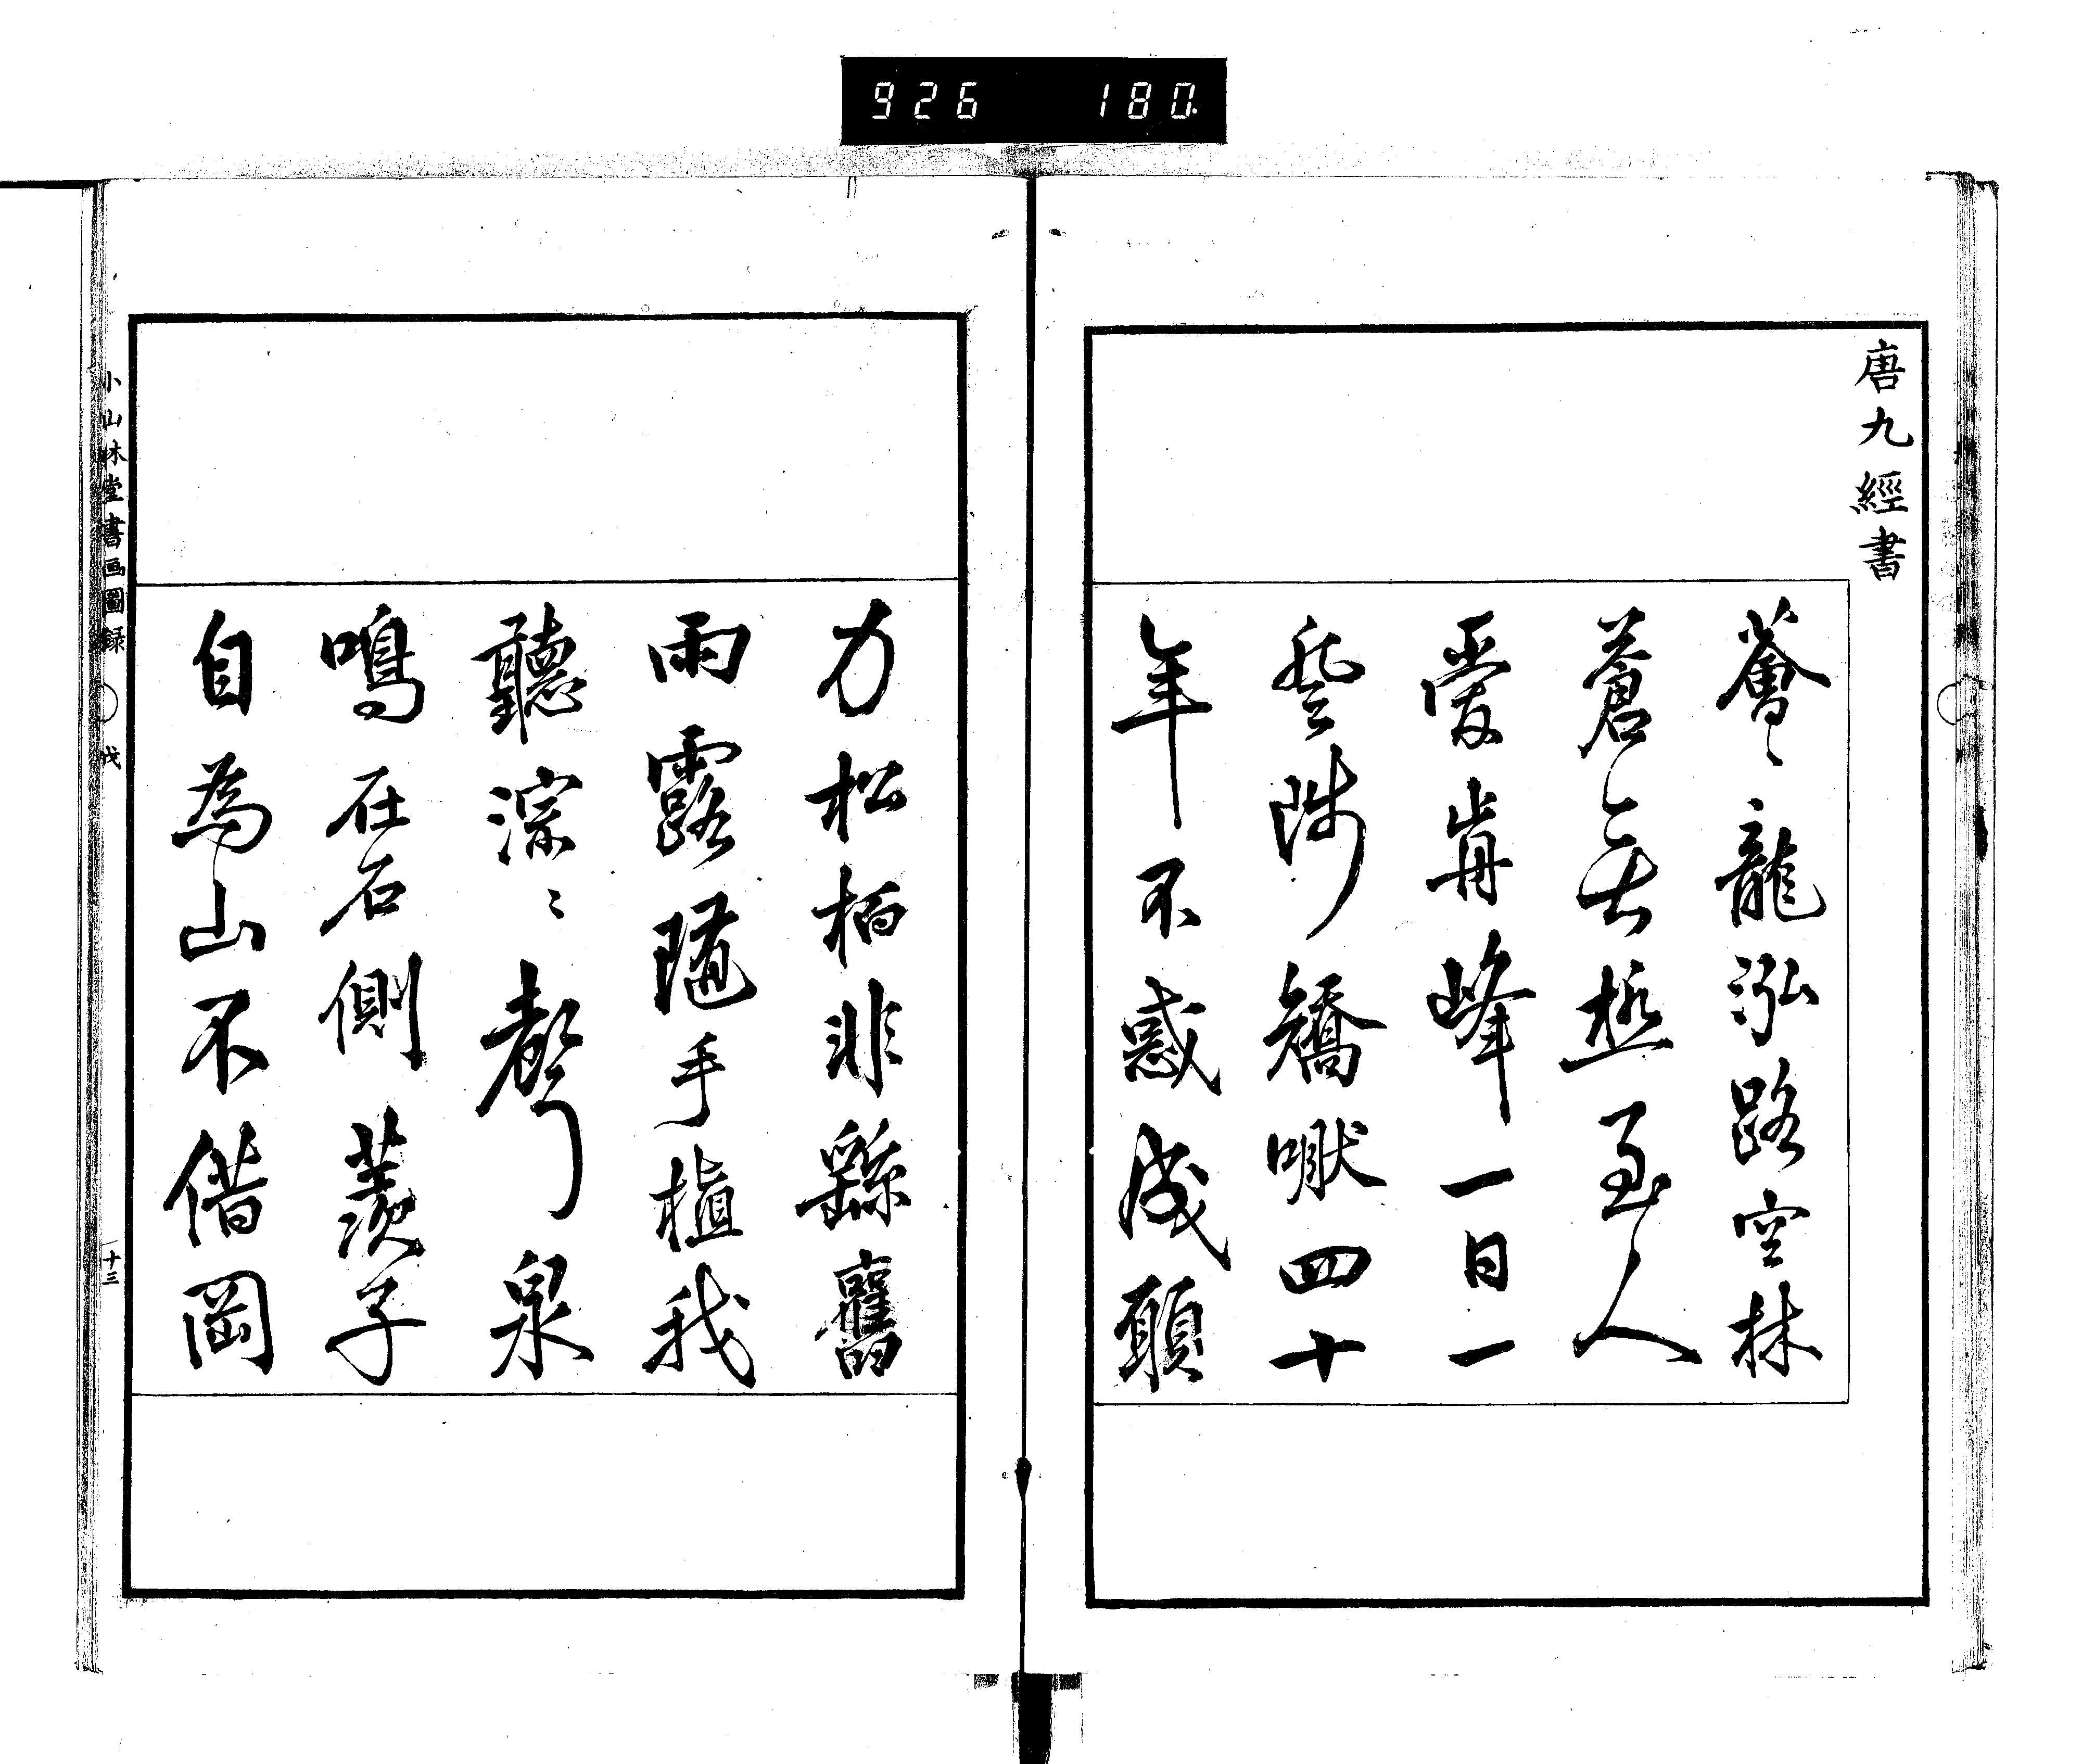 926 180
唐九經書
薈〻龍泓路空林
蒼〻無極至人
愛前峰一日一
登陟矯 四十
年不惑成願
力松栢非繇舊
雨露隨手植我
聽淙〻聲泉
鳴在石側羨子
自為山不借岡
小山林堂書画圖録 戊 十三